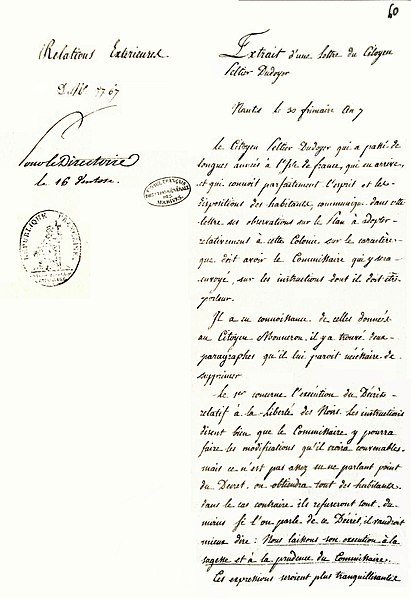 60
Relations Extérieures.
D. N.º 7767
Pour le Directoire
le 16 Ventose.
RÉPUBLIQUE FRANÇAISE
Extrait d'une lettre du Citoyen
Peltier Dudoyer
Nantes le 30 frimaire an 7
Le Citoyen Peltier Dudoyer qui a passé de
longues années à l'Isle de france, qui en arrive,
et qui connoit parfaitement l'esprit et les
dispositions des habitants communique dans cette
lettre ses observations sur le Plan à adopter
relativement à cette Colonie sur le caractère
que doit avoir le Commissaire qui y sera
envoyé, sur les instructions dont il doit être
porteur.
Il a eu connoissance de celles données
au Citoyen Monneron, il y a trouvé deux
paragraphes qu'il lui paroit nécéssaire de
supprimer
Le 1er concerne l'exécution du Décret
relatif à la Liberté des Noirs. Les instructions
disent bien que le Commissaire y pourra
faire les modifications qu'il croira convenables.
mais ce n'est pas assez en ne parlant point
du Decret, on obtiendra tout des habitants
dans le cas contraire ils refuseront tout. du
moins si l'on parle de ce Décret, il vaudroit
mieux dire : Nous laissons son execution à la
sagesse et à la prudence du Commissaire.
Ces expressions seroient plus tranquillisantes